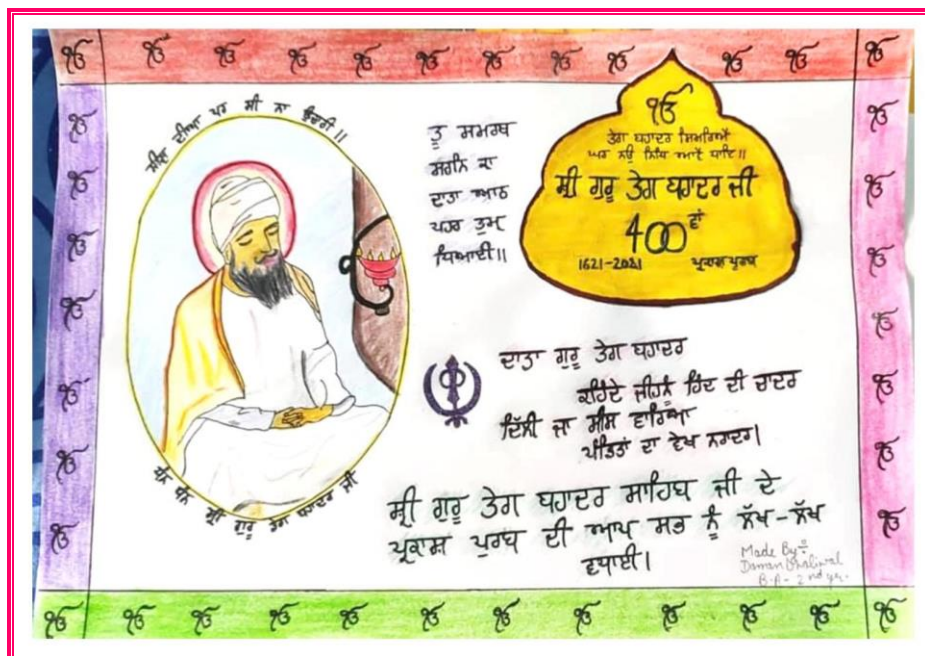 ਸੀਸ ਦੀਆ ਪਰ ਸੀ ਨਾ ਉਚਰੀ॥
ਧੰਨ ਧੰਨ ਸ੍ਰੀ ਗੁਰੂ ਤੇਗ ਬਹਾਦਰ ਜੀ
ਤੂ ਸਮਰਥ
ਸਰਨਿ ਕਾ
ਦਾਤਾ ਆਠ
ਪਹਰ ਤੁਮ੍
ਧਿਆਈ॥
ੴ
ਤੇਗ ਬਹਾਦਰ ਸਿਮਰਿਐ
ਘਰ ਨਉ ਨਿਧਿ ਆਵੈ ਧਾਇ॥
ਸ੍ਰੀ ਗੁਰੂ ਤੇਗ ਬਹਾਦਰ ਜੀ
400 ਵਾਂ
1621-2021 ਪ੍ਰਕਾਸ਼ ਪੁਰਬ
ਦਾਤਾ ਗੁਰੂ ਤੇਗ ਬਹਾਦਰ
ਕਹਿੰਦੇ ਜੀਹਨੂੰ ਹਿੰਦ ਦੀ ਚਾਦਰ
ਦਿੱਲੀ ਜਾ ਸੀਸ ਵਾਰਿਆ
ਪੰਡਿਤਾਂ ਦਾ ਵੇਖ ਨਰਾਦਰ।
ਸ੍ਰੀ ਗੁਰੂ ਤੇਗ ਬਹਾਦਰ ਸਾਹਿਬ ਜੀ ਦੇ
ਪ੍ਰਕਾਸ਼ ਪੁਰਬ ਦੀ ਆਪ ਸਭ ਨੂੰ ਲੱਖ-ਲੱਖ
ਵਧਾਈ।
Made By:-
Daman Dhaliwal
B.A- 2nd yr.